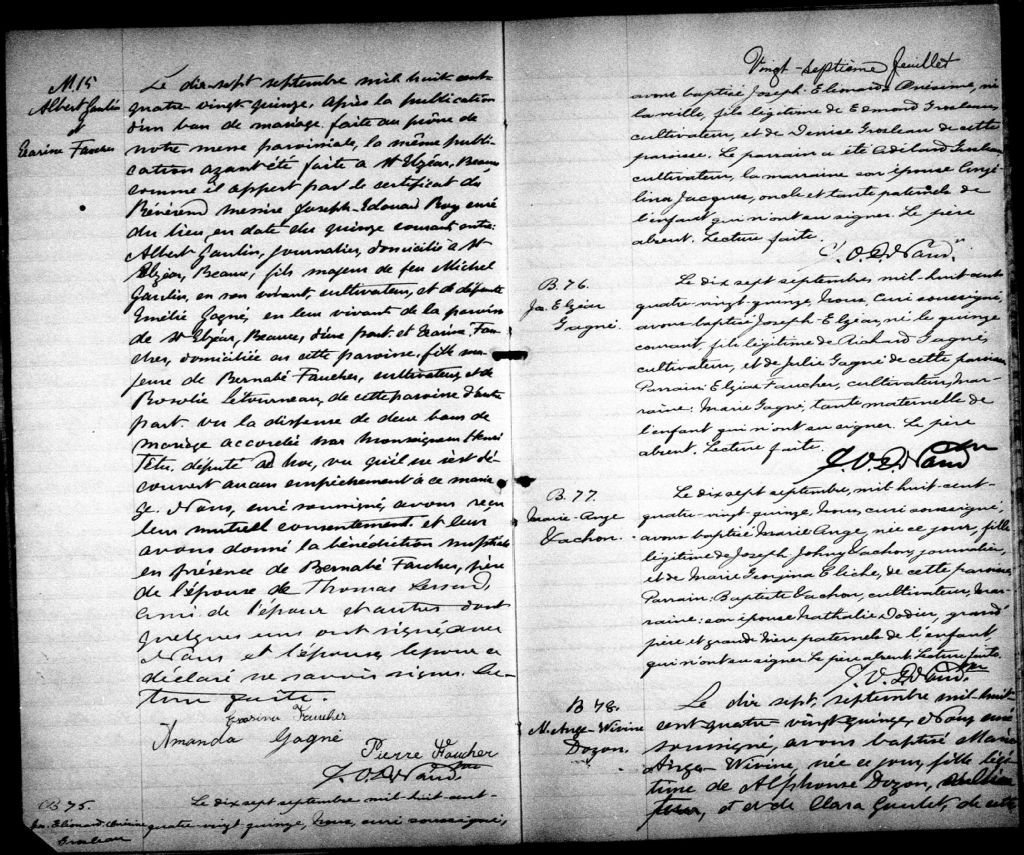 M. 15
Albert Gaulin
et
Exarine Faucher
Le dix-sept septembre mil huit cent-
quatre-vingt quinze, après la publication
d'un ban de mariage faite au prône de
notre messe paroissiale, la même publi-
cation ayant été faite à St Elzéar, Beauce
comme il appert par le certificat du
Révérend messire Joseph-Edouard Roy curé
du lieu, en date du quinze courant entre
Albert Gaulin, journalier, domicilié à St
Elzéar, Beauce, fils majeur de feu Michel
Gaulin, en son vivant, cultivateur, et de défunte
Emélie Gagné, en leur vivant de la paroisse
de St Elzéar, Beauce, d'une part. et Exarine Fau-
cher, domiciliée en cette paroisse, fille ma-
jeure de Bernabé Faucher, cultivateur, et de
Rosalie Létourneau, de cette paroisse d'autre
part. vu la dispense de deux bans de
mariage accordée par Monseigneur Henri
Têtu, député ad hoc, vu qu'il ne s'est dé-
couvert aucun empêchement à ce maria-
ge. Nous, curé soussigné, avons reçu
leur mutuel consentement et leur
avons donné la bénédiction nuptiale
en présence de Bernabé Faucher, père
de l'épouse de Thomas Lessard,
ami de l'époux et autres dont
quelques uns ont signé avec
Nous et l'épouse, l'époux a
déclaré ne savoir signer. Lec-
ture faite.
Exarina Faucher
Amanda Gagné
Pierre Faucher
B. 75.
Le dix sept septembre mil-huit-cent-
quatre-vingt quinze, Nous, curé soussigné,
Vingt-septième feuillet
avons baptisé Joseph-Elionard Onésime, né
la veille, fils légitime de Edmond Groleau,
cultivateur, et de Denise Groleau de cette
paroisse. Le parrain a été Adélard Groleau
cultivateur, la marraine son épouse Angé-
lina Jacques, oncle et tante paternels de
l'enfant qui n'ont su signer. Le père
absent. Lecture faite.
B. 76.
Jos. Elzéar
Gagné.
Le dix sept septembre, mil-huit-cent
quatre-vingt-quinze, Nous, curé soussigné,
avons baptisé Joseph-Elzéar, né le quinze
courant, fils légitime de Richard Gagné,
cultivateur, et de Julie Gagné de cette paroisse
Parrain: Elzéar Faucher, cultivateur, mar-
raine: Marie Gagné, tante maternelle de
l'enfant qui n'ont su signer. Le père
absent. Lecture faite.
B. 77.
Marie-Ange
Vachon.
Le dix sept septembre, mil-huit-cent-
quatre-vingt-quinze, Nous, curé soussigné,
avons baptisé Marie Ange, née ce jour, fille
légitime de Joseph Johny Vachon, journalier,
et de Marie Georgina Cliche, de cette paroisse
Parrain: Baptiste Vachon, cultivateur, mar-
raine: son épouse Nathalie Dodier, grand
père et grand'mère paternels de l'enfant,
qui n'ont su signer. Le père absent. Lecture faite.
B 78.
M. Ange-Wivine
Dozon.
Le dix sept, septembre mil-huit
cent quatre vingt quinze, Nous curé
soussigné, avons baptisé Marie
Ange-Wivine, née ce jour, fille légi-
time de Alphonse Dozon,
et de Clara Goulet, de cette